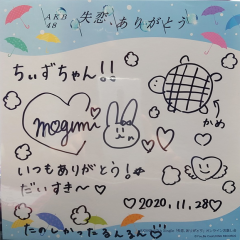 AKB48 失恋、ありがとう
ちぃずちゃん!!
mogumi
かめ
いつもありがとう!
だいすき〜♡
♡2020.11.28♡
たのしかったるんるん♡